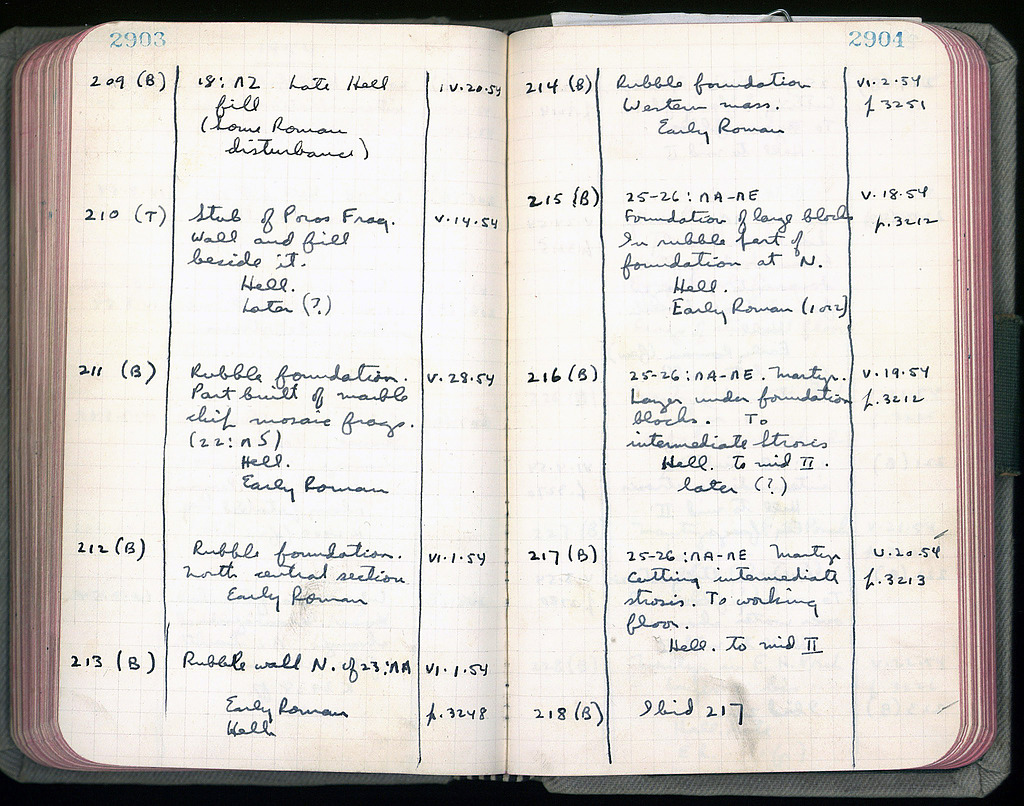 2903
209 (B) 18: ΛΖ Late Hell IV.20.54
fill
(some Roman
disturbance)
210 (T) Stub of Poros Frag. V.14.54
Wall and fill
beside it.
Hell.
Later (?)
211 (B) Rubble foundation. V.28.54
Part built of marble
chip mosaic frags.
Hell.
Early Roman
212 (B) Rubble foundation. VI.1.54
North central section
Early Roman
213 (B) Rubble wall N. of 23:ΛΛ VI.1.54
Early Roman p.3248
Hell.
2904
214 (B) Rubble foundation VI.2.54
Western mass. p.3251
Early Roman
215 (B) 25-26: ΛΑ-ΛΕ V.18.54
Foundation of large blocks p.3212
In rubble part of
foundation at N.
Hell.
Early Roman (1 or 2)
216 (B) 25-26: ΛΑ-ΛΕ. Martyr. V.19.54
Layer under foundation p.3212
blocks. To
intermediate Strosis
Hell. to mid II.
later (?)
217 (B) 25-26: ΛΑ-ΛΕ Martyr V.20.54
Cutting intermediate p.3213
strosis. To working
floor.
Hell. to mid II
218 (B) Ibid 217